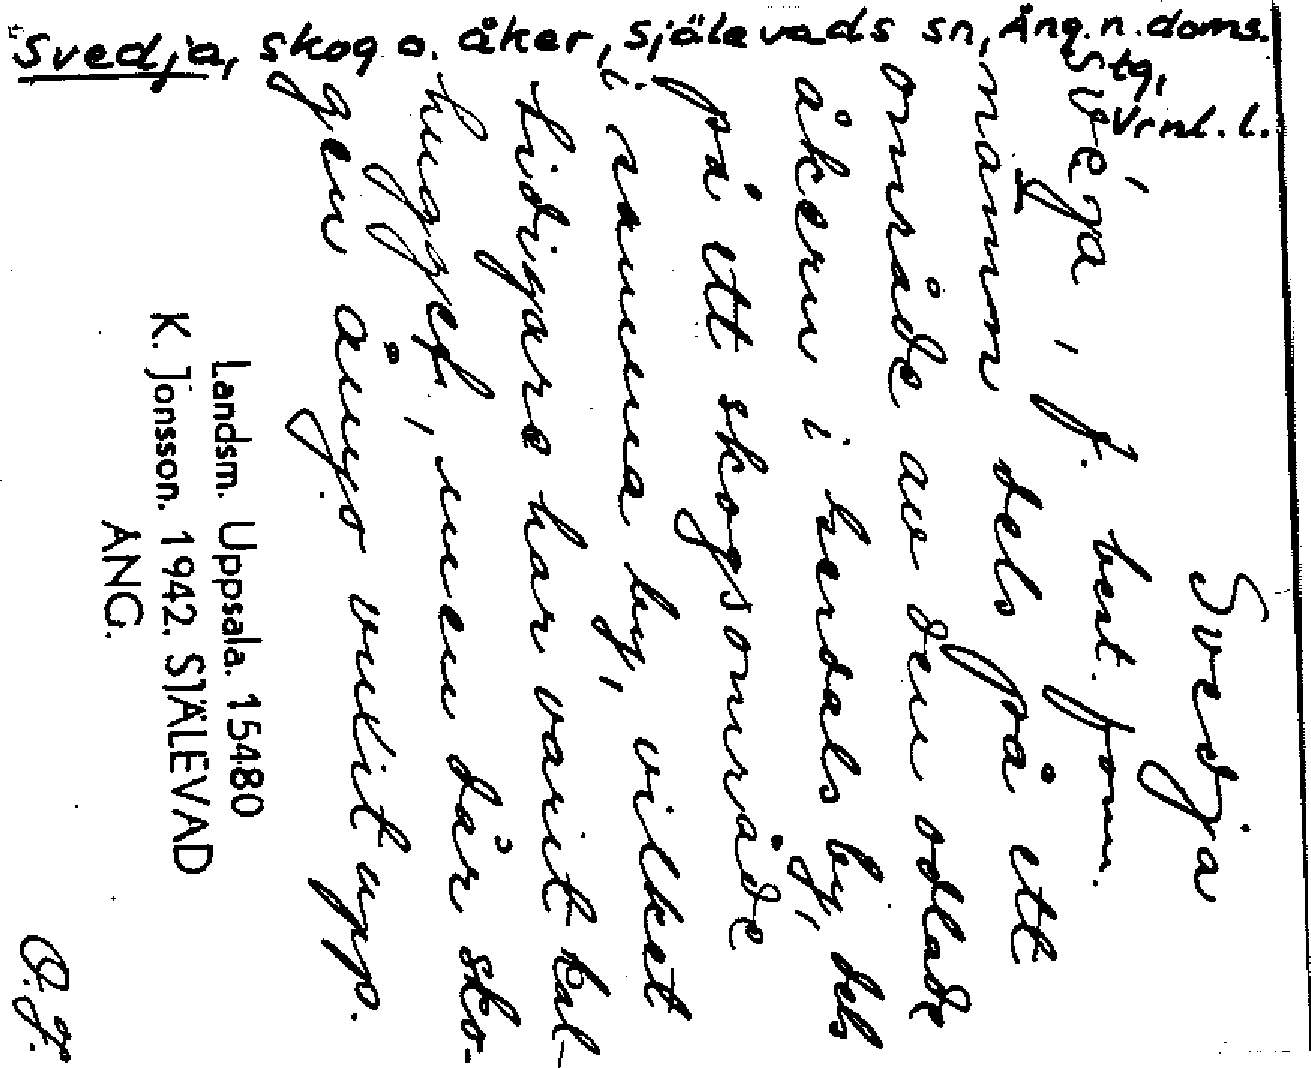 Svedja, skog o. åker, Själevads sn, Ång. n. doms.
stg,
Vrnl. l.
Svedja
f. best. form.
namn dels på ett
område av den odlade
åkern i herdals by, dels
på ett skogsområde
i samma by, vilket
tidigare har varit kal-
hugget, men där sko-
gen ånyo vuxit upp.
Landsm. Uppsala. 15480
K. Jonsson. 1942. SJÄLEVAD
ÅNG.